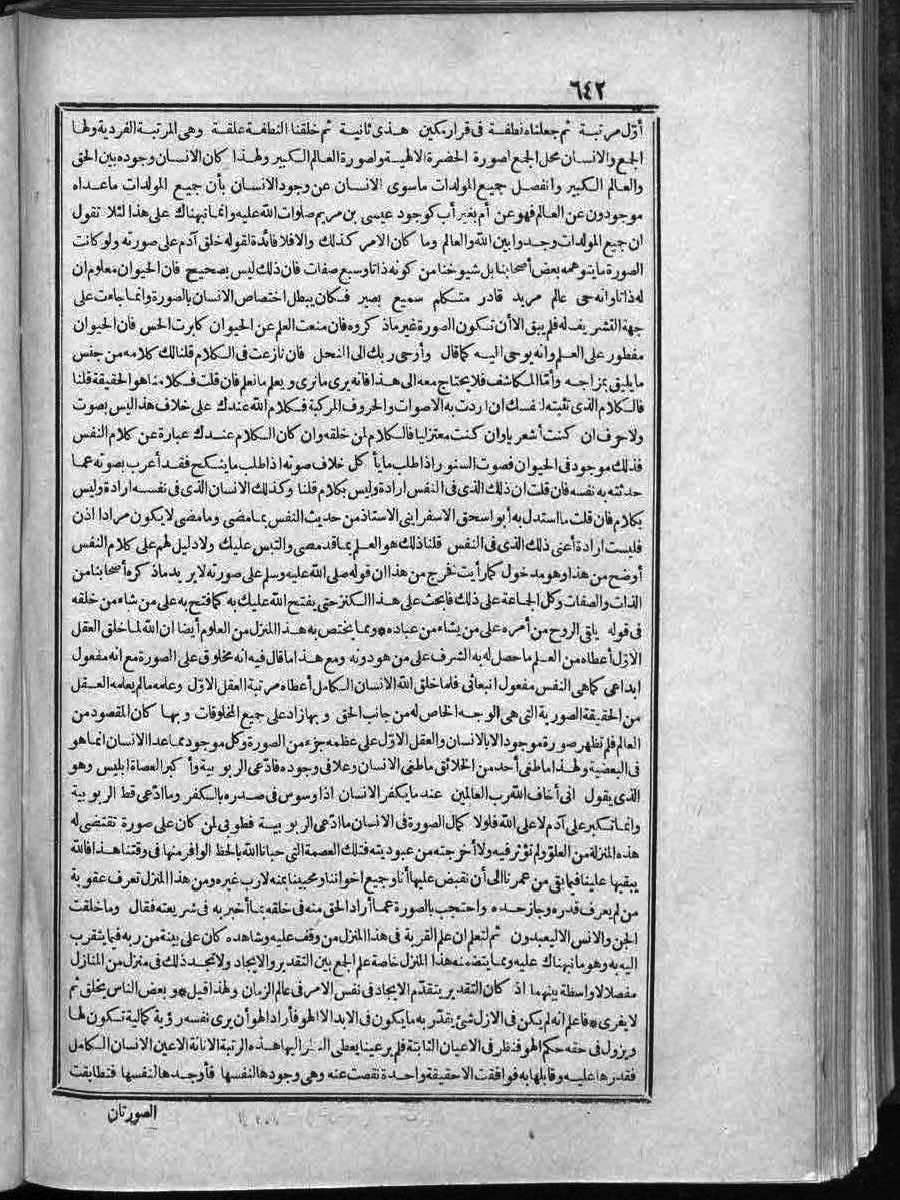 ٦٤٢
أوّل مرتبة ثم جعلناه نطفة فى قرار مكين هذى ثانية ثم خلقنا النطفة علقة وهى المرتبة الفردية ولها
الجمع والانسان محل الجمع لصورة الحضرة الالهية ولصورة العالم الكبير ولهذا كان الانسان وجوده بين الحق
والعالم الكبير وانفصل جميع المولدات ماسوى الانسان عن وجود الانسان بأن جميع المولدات ماعداه
موجودون عن العالم فهو عن أم بغير أب كوجود عيسى بن مريم صلوات الله عليه وانما نبهناك على هذا لئلا تقول
ان جميع المولدات وجدوا بين الله والعالم وما كان الامر كذلك والا فلا فائدة لقوله خلق آدم على صورته ولو كانت
الصورة ما يتوهمه بعض أصحابنا بل شيوخنا من كونه ذاتا وسبع صفات فان ذلك ليس بصحيح فان الحيوان معلوم ان
له ذاتا وانه حى عالم مريد قادر متكلم سميع بصير فكان يبطل اختصاص الانسان بالصورة وانما جاءت على
جهة التشريف له فلم يبق الا أن تكون الصورة غير ما ذكروه فان منعت العلم عن الحيوان كابرت الحس فان الحيوان
مفطور على العلم وانه يوحى اليه كما قال وأوحى ربك الى النحل فان نازعت فى الكلام قلنا لك كلامه من جنس
ما يليق بمزاجه وأما المكاشف فلا يحتاج معه الى هذا فانه يرى ما نرى ويعلم ما نعلم فان قلت فكلامنا هو الحقيقة قلنا
فالكلام الذى تثبته لنفسك ان أردت به الاصوات والحروف المركبة فكلام الله عندك على خلاف هذا ليس بصوت
ولا حرف ان كنت أشعريا وان كنت معتزليا فالكلام لمن خلقه وان كان الكلام عندك عبارة عن كلام النفس
فذلك موجود فى الحيوان فصوت السنور اذا طلب ما يأكل خلاف صوته اذا طلب ما ينكح فقد أعرب بصوته عما
حدثته به نفسه فان قلت ان ذلك الذى فى النفس ارادة وليس بكلام قلنا وكذلك الانسان الذى فى نفسه ارادة وليس
بكلام فان قلت ما استدل به أبو اسحق الاسفراينى الاستاذ من حديث النفس بما مضى وما مضى لا يكون مرادا اذن
فليست ارادة أعنى ذلك الذى فى النفس قلنا ذلك هو العلم بما قد مضى والتبس عليك ولا دليل لهم على كلام النفس
أوضح من هذا وهو مدخول كما رأيت فخرج من هذا ان قوله صلى الله عليه وسلم على صورته لا يريد ما ذكره أصحابنا من
الذات والصفات وكل الجماعة على ذلك فابحث على هذا الكنز حتى يفتح الله عليك به كما فتح به على من شاء من خلقه
فى قوله يلقى الروح من أمره على من يشاء من عباده * ومما يختص به هذا المنزل من العلوم أيضا ان الله لما خلق العقل
الاوّل أعطاه من العلم ما حصل له به الشرف على من هو دونه ومع هذا ما قال فيه انه مخلوق على الصورة مع انه مفعول
ابداعى كما هى النفس مفعول انبعاثى فلما خلق الله الانسان الكامل أعطاه مرتبة العقل الاوّل وعلمه ما لم يعلمه العقل
من الحقيقة الصورية التى هى الوجه الخاص له من جانب الحق وبها زاد على جميع المخلوقات وبها كان المقصود من
العالم فلم تظهر صورة موجود الا بالانسان والعقل الاوّل على عظمه جزء من الصورة وكل موجود مما عدا الانسان انما هو
فى البعضية ولهذا ما طغى أحد من الخلائق ما طغى الانسان وعلا فى وجوده فادّعى الربوبية وأكبر العصاة ابليس وهو
الذى يقول انى أخاف الله رب العالمين عند ما يكفر الانسان اذا وسوس فى صدره بالكفر وما ادّعى قط الربوبية
وانما تكبر على آدم لا على الله فلولا كمال الصورة فى الانسان ما ادّعى الربوبية فطوبى لمن كان على صورة تقتضى له
هذه المنزلة من العلو ولم تؤثر فيه ولا أخرجته من عبوديته فتلك العصمة التى حبانا الله بالحظ الوافر منها فى وقتنا هذا فالله
يبقيها علينا فيما بقى من عمرنا الى أن نقبض عليها أنا وجميع اخواننا ومحبينا بمنه لا رب غيره ومن هذا المنزل تعرف عقوبة
من لم يعرف قدره وجاز حده واحتجب بالصورة عما أراد الحق منه فى خلقه بما أخبر به فى شريعته فقال وما خلقت
الجن والانس الا ليعبدون ثم لتعلم ان علم القربة فى هذا المنزل من وقف عليه وشاهده كان على بينة من ربه فيما يتقرب
اليه به وهو ما نبهناك عليه ومما يتضمنه هذا المنزل خاصة علم الجمع بين التقدير والايجاد ولا تجد ذلك فى منزل من المنازل
مفصلا لا واسطة بينهما اذ كان التقدير يتقدّم الايجاد فى نفس الامر فى عالم الزمان ولهذا قيل * و بعض الناس يخلق ثم
لا يفرى * فاعلم انه لم يكن فى الازل شئ يقدّر به ما يكون فى الابد الا الهو فأراد الهو أن يرى نفسه رؤية كمالية تكون لها
ويزول فى حقه حكم الهو فنظر فى الاعيان الثابتة فلم ير عينا يعطى النظر اليها هذه الرتبة الانانة الا عين الانسان الكامل
فقدرها عليه وقابلها به فوافقت الا حقيقة واحدة نقصت عنه وهى وجودها لنفسها فأوجدها لنفسها فتطابقت
الصورتان